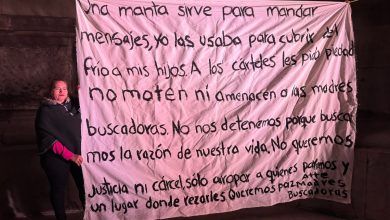 Una manta sirve para mandar
mensajes, yo las usaba para cubrir del
frio a mis hijos. A los cárteles les pido piedad
no maten ni amenacen a las madres
buscadoras. No nos detenemos porque busca
mos la razón de nuestra vida. No queremos
justicia ni cárcel, sólo arropar a quienes parimos y
un lugar donde rezarles. Queremos paz
Atte
Madres
Buscadoras